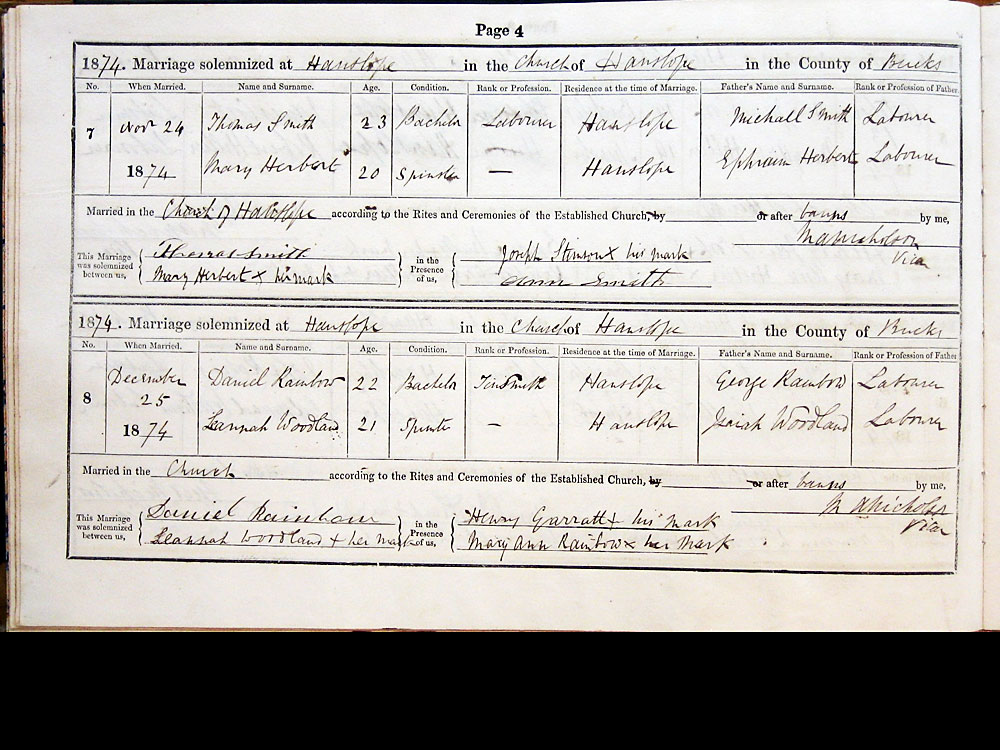 Page 4
1874. Marriage solemnized at Hanslope in the Church of Hanslope in the County of Bucks
No. When Married. Name and Surname. Age. Condition. Rank or Profession. Residence at the time of Marriage. Father's Name and Surname. Rank or Profession of Father.
7 Nov 24 Thomas Smith 23 Bachelor Labourer Hanslope Michall Smith Labourer
1874 Mary Herbert 20 Spinster — Hanslope Ephraim Herbert Labourer
Married in the Church of Hanslope according to the Rites and Ceremonies of the Established Church, by or after banns by me,
This Marriage was solemnized between us,
Thomas Smith
Mary Herbert x her mark
in the Presence of us,
Joseph Stinson x his mark
Ann Smith
Vicar
1874. Marriage solemnized at Hanslope in the Church of Hanslope in the County of Bucks
No. When Married. Name and Surname. Age. Condition. Rank or Profession. Residence at the time of Marriage. Father's Name and Surname. Rank or Profession of Father
8 December 25 Daniel Rainbow 22 Bachelor Tinsmith Hanslope George Rainbow Labourer
1874 Leannah Woodland 21 Spinster — Hanslope Isaiah Woodland Labourer
Married in the Church according to the Rites and Ceremonies of the Established Church, by or after banns by me,
This Marriage was solemnized between us,
Daniel Rainbow
Leannah Woodland + her mark
in the Presence of us,
Henry Garratt + his mark
Mary Ann Rainbow x her mark
Vicar